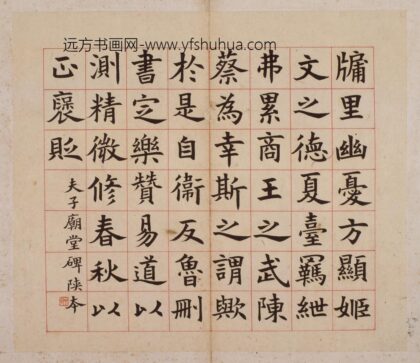 远方书画网-www.yfshuhua.com
牖里幽憂方顯姬
文之德夏臺羈紲
弗累商王之武陳
蔡為幸斯之謂歟
於是自衛反魯刪
書定樂贊易道以
測精微修春秋以
正褒貶
夫子廟堂碑陝本